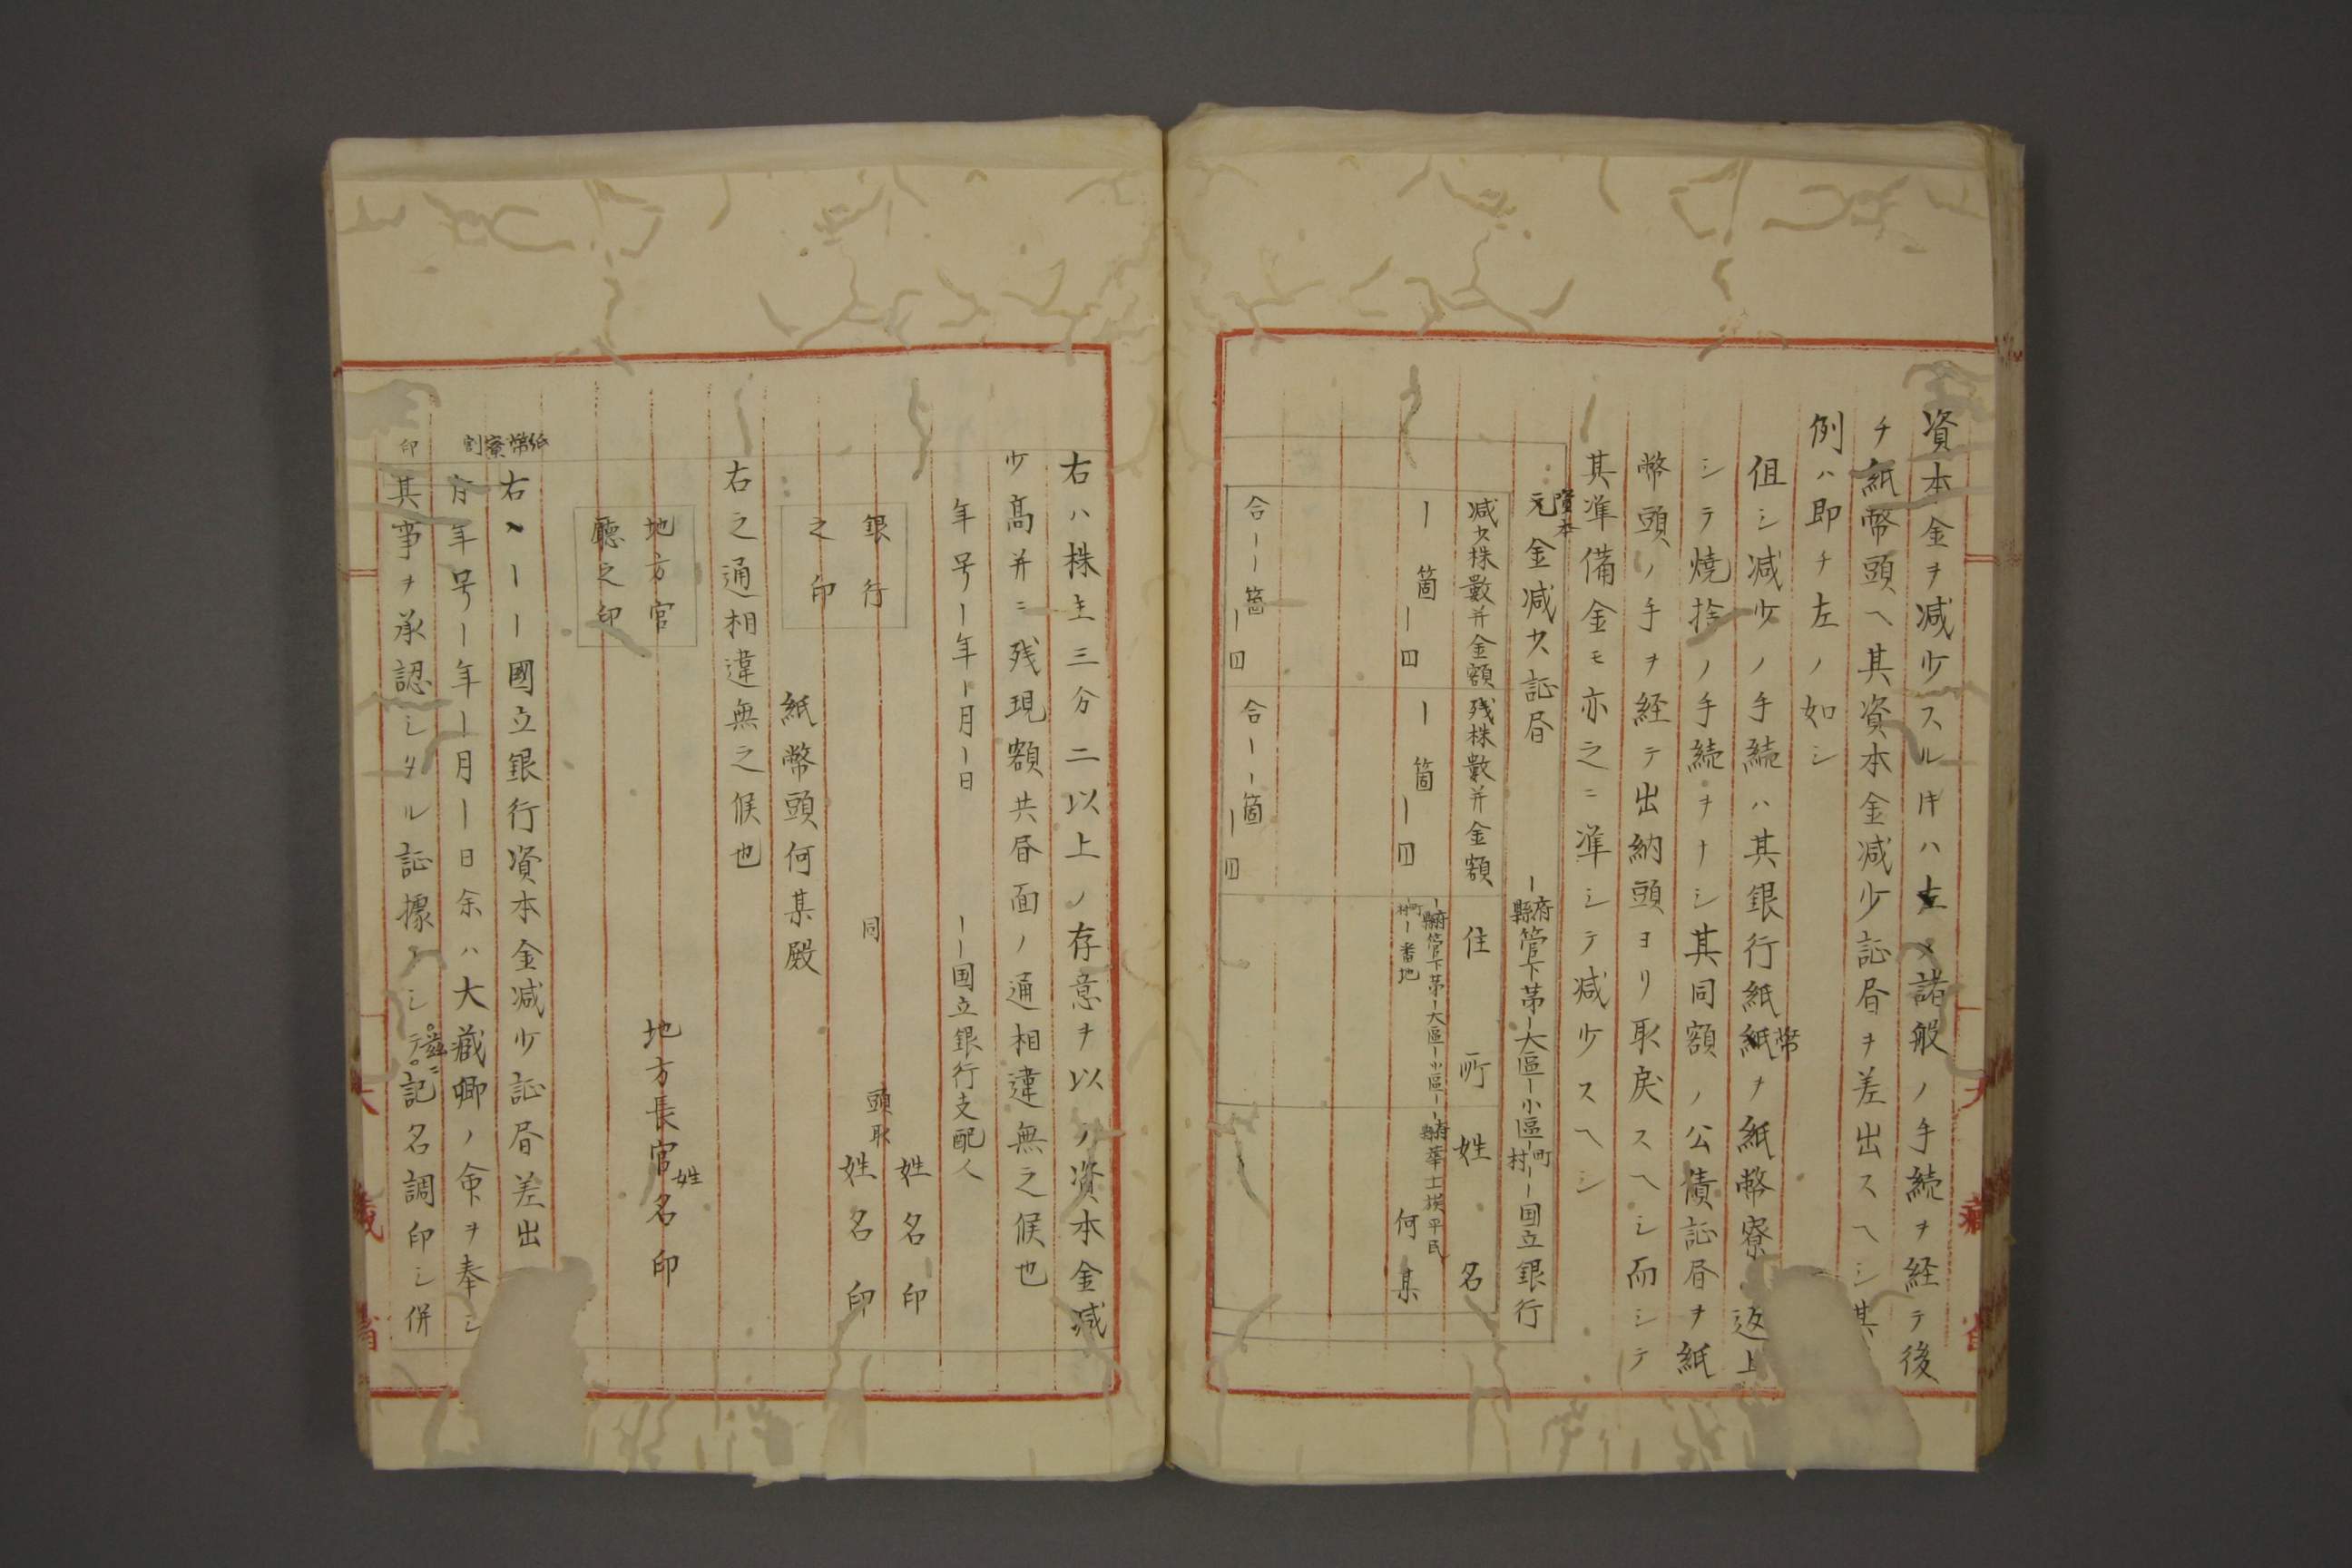 資本金ヲ減少スル𪜈ハ左ノ諸般ノ手続ヲ経テ後
チ紙幣頭ヘ其資本金減少証昏ヲ差出スヘシ其
例ハ即チ左ノ如シ
但シ減少ノ手続ハ其銀行紙幣ヲ紙幣寮ニ返上
シテ焼捨ノ手続ヲナシ其同額ノ公債証昏ヲ紙
幣頭ノ手ヲ経テ出納頭ヨリ取戻スヘシ而シテ
其準備金モ亦之ニ準シテ減少スヘシ
資本
元金減少証昏 ー府縣管下第ー大區ー小區ー町村ーー国立銀行
減少株数并金額 残株数并金額 住所 姓名
ー箇 ー箇 ー府縣管下第ー大區ー小區ー ー府縣華士族平民
ー円 ー円 ー町村ー番地 何某
合ーー箇 合ーー箇
ー円 ー円
大藏省
右ハ株主三分二以上ノ存意ヲ以ノ資本金減
少高并ニ残現額共昏面ノ通相違無之候也
年号ー年ー月ー日 ーー国立銀行支配人
姓名印
銀行之印 同 頭取 姓名印
紙幣頭何某殿
右之通相違無之候也
地方官廳之印 地方長官姓名印
紙幣寮割印
右ハーー國立銀行資本金減少証昏差出
年号ー年ー月ー日余ハ大藏卿ノ命ヲ奉シ
其事ヲ承認シタル証據トシテ茲ニ記名調印シ併
大藏省